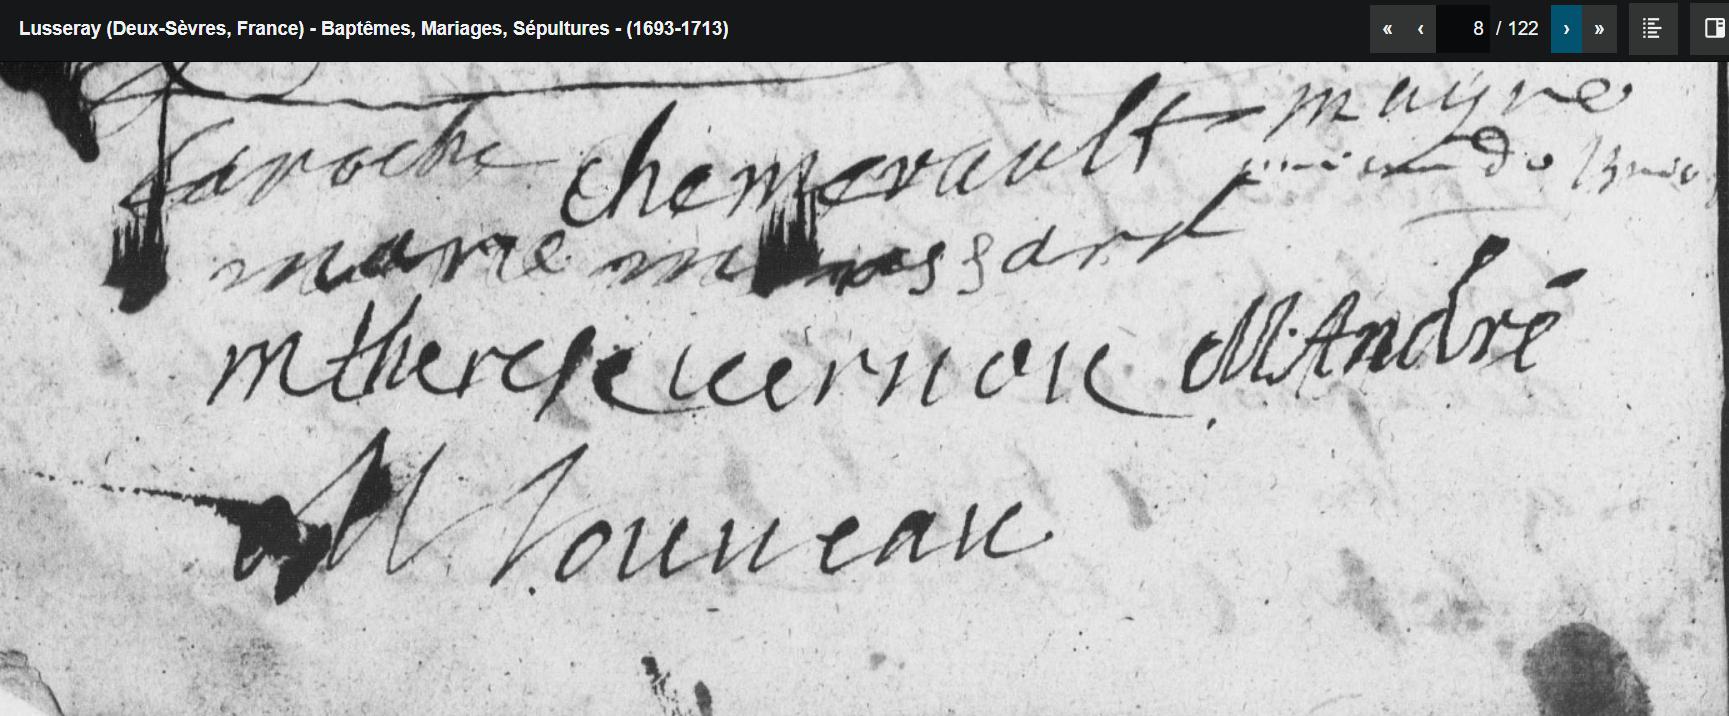 Lusseray (Deux-Sèvres, France) - Baptêmes, Mariages, Sépultures - (1693-1713)
« ‹ 8 / 122 › »
mayne
Laroche chemerault
marie
m therese uernou M. André
M Jouneau